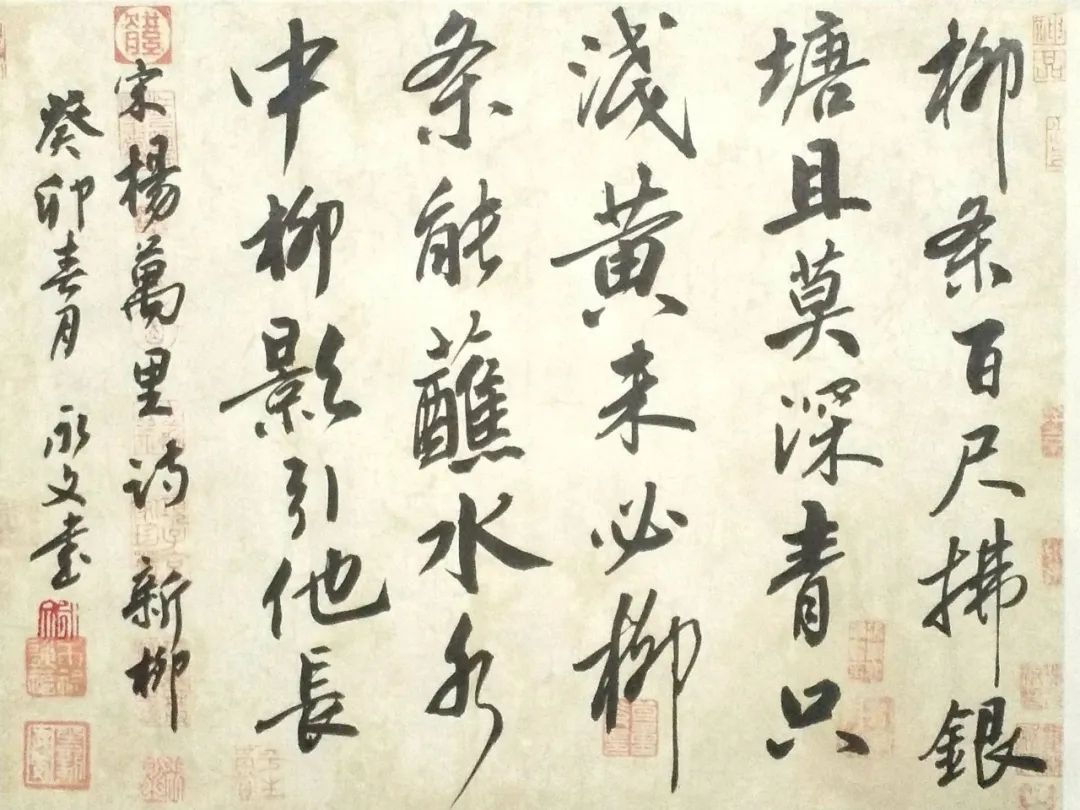 柳条百尺拂銀
塘且莫深青只
浅黄未必柳
条能蘸水水
中柳影引他長
宋楊萬里詩新柳
癸卯春月永文書